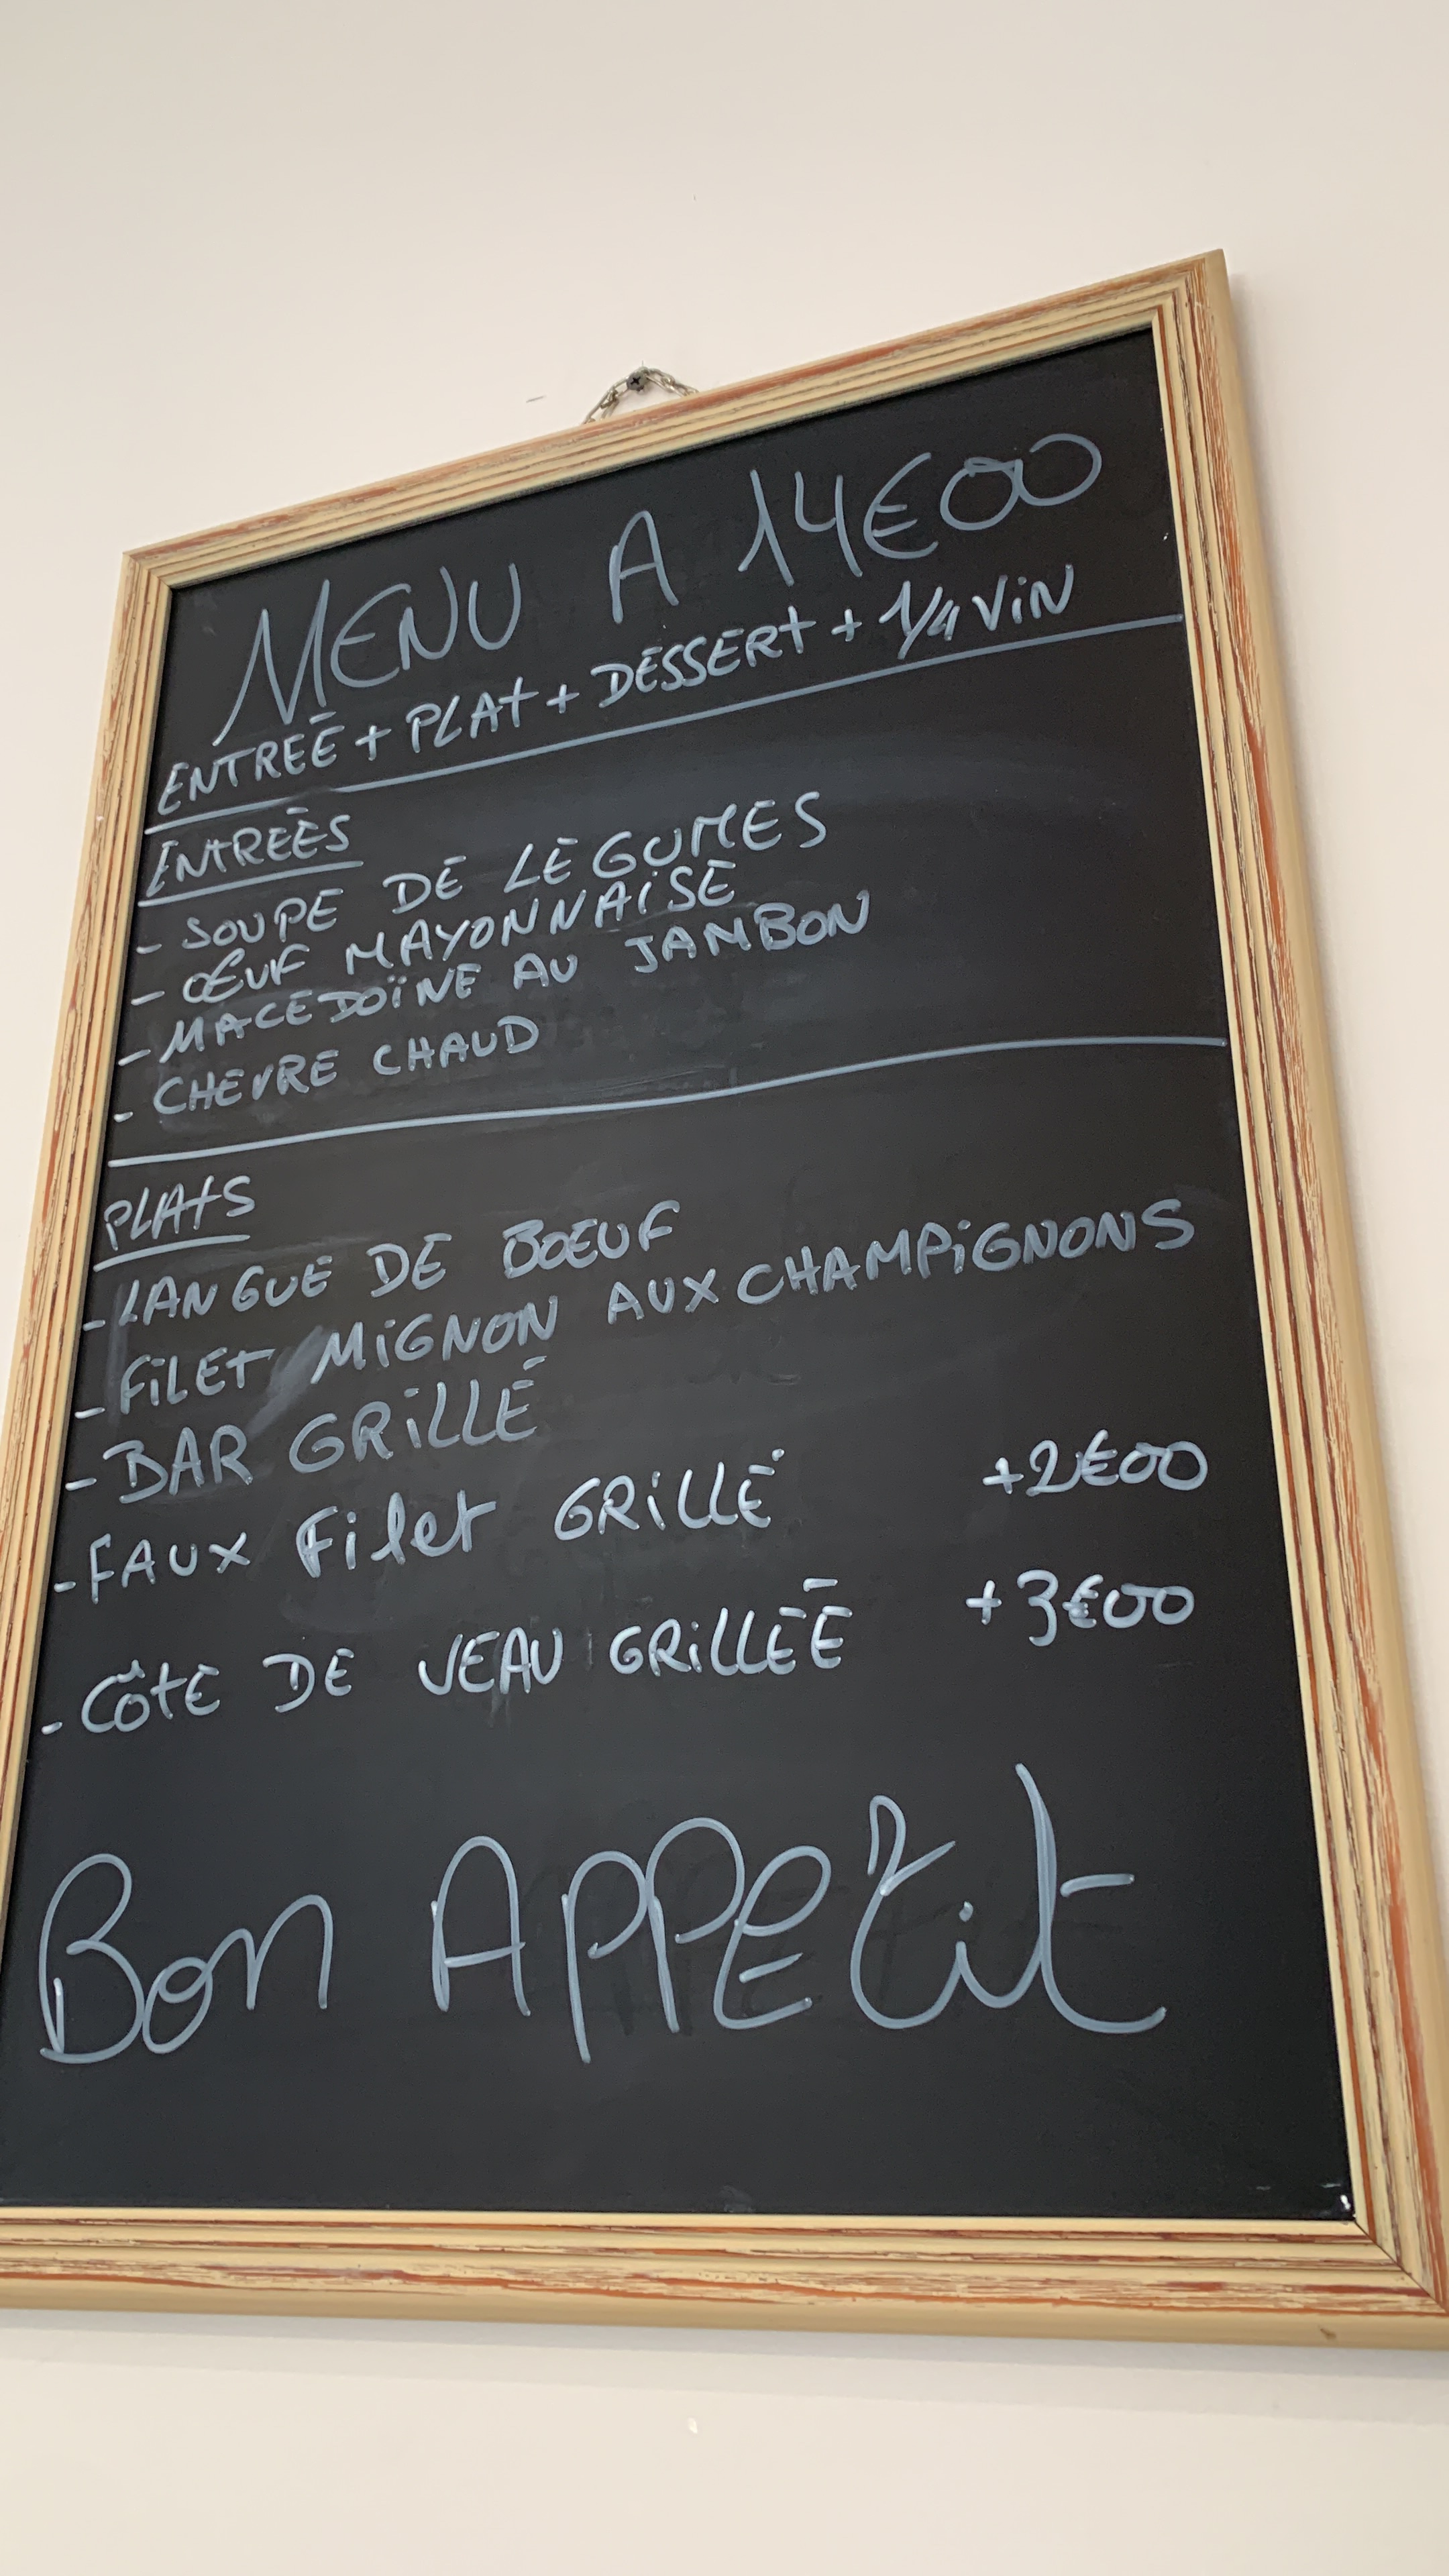 MENU A 14€00
ENTREÉ + PLAT + DESSERT + 1/4 VIN
ENTREÉS
- SOUPE DE LÉGUMES
- ŒUF MAYONNAISE
- MACEDOÏNE AU JAMBON
- CHEVRE CHAUD
PLATS
- LANGUE DE BŒUF
- FILET MIGNON AUX CHAMPIGNONS
- BAR GRILLÉ
- FAUX Filet GRILLÉ +2€00
- CÔTE DE VEAU GRILLÉE +3€00
Bon APPEtit